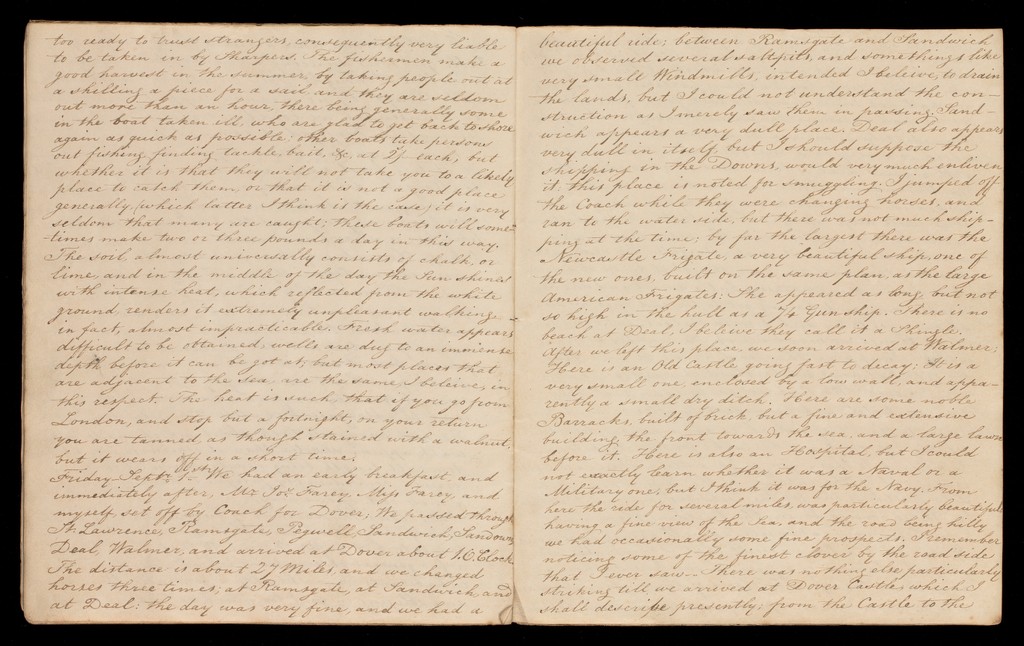 too ready to trust strangers, consequently very liable
to be taken in by Sharpers. The fishermen make a
good harvest in the summer, by taking people out at
a shilling a piece for a sail and they are seldom
out more than an hour, there being generally some
in the boat taken ill, who are glad to get back to shore
again as quick as possible: other boats take persons
out fishing finding tackle, bait, &c, at 2/ each, but
whether it is that they will not take you to a likely
place to catch them, or that it is not a good place
generally, (which latter I think is the case) it is very
seldom that many are caught; these boats will some-
-times make two or three pounds a day in this way.
The soil, almost universally consists of chalk, or
lime, and in the middle of the day the Sun shines
with intense heat, which reflected from the white
ground, renders it extremely unpleasant walking
in fact, almost impracticable. Fresh water appears
difficult to be obtained, wells are dug to an immense
depth before it can be got at, but most places that
are adjacent to the sea, are the same, I beleive, in
this respect. The heat is such, that if you go from
London, and stop but a fortnight, on your return
you are tanned, as though stained with a walnut,
but it wears off in a short time.
Friday Septr. 1st. We had an early breakfast, and
immediately after, Mr Jos. Farey, Miss Farey, and
myself, set off by Coach for Dover; We passed through
St. Lawrence, Ramsgate, Pegwell, Sandwich, Sandown
Deal, Walmer, and arrived at Dover about 1. O'Clock
The distance is about 27 Miles, and we changed
horses three times; at Ramsgate, at Sandwich, and
at Deal: the day was very fine, and we had a
beautiful ride; between Ramsgate and Sandwich
we observed several saltpits, and some things like
very small Windmills, intended I beleive, to drain
the lands, but I could not understand the con-
struction as I merely saw them in passing. Sand-
wich appears a very dull place. Deal also appears
very dull in itself, but I should suppose the
shipping in the Downs, would very much enliven
it, this place is noted for smuggling. I jumped off
the Coach while they were changing horses, and
ran to the water side, but there was not much ship-
ping at the time; by far the largest there was the
Newcastle Frigate, a very beautiful ship, one of
the new ones, built on the same plan, as the large
American Frigates: She appeared as long, but not
so high in the hull as a 74 Gun ship. There is no
beach at Deal, I beleive they call it a Shingle.
After we left this place, we soon arrived at Walmer;
Here is an Old Castle going fast to decay: It is a
very small one, enclosed by a low wall, and appa-
rently a small dry ditch. Here are some noble
Barracks, built of brick, but a fine and extensive
building, the front towards the sea, and a large lawn
before it. Here is also an Hospital, but I could
not exactly learn whether it was a Naval or a
Military one, but I think it was for the Navy. From
here the ride for several miles, was particularly beautiful
having a fine view of the Sea, and the road being hilly
we had occasionally some fine prospects. I remember
noticing some of the finest clover by the road side
that I ever saw -- There was nothing else particularly
striking till we arrived at Dover Castle, which I
shall describe presently; from the Castle to the